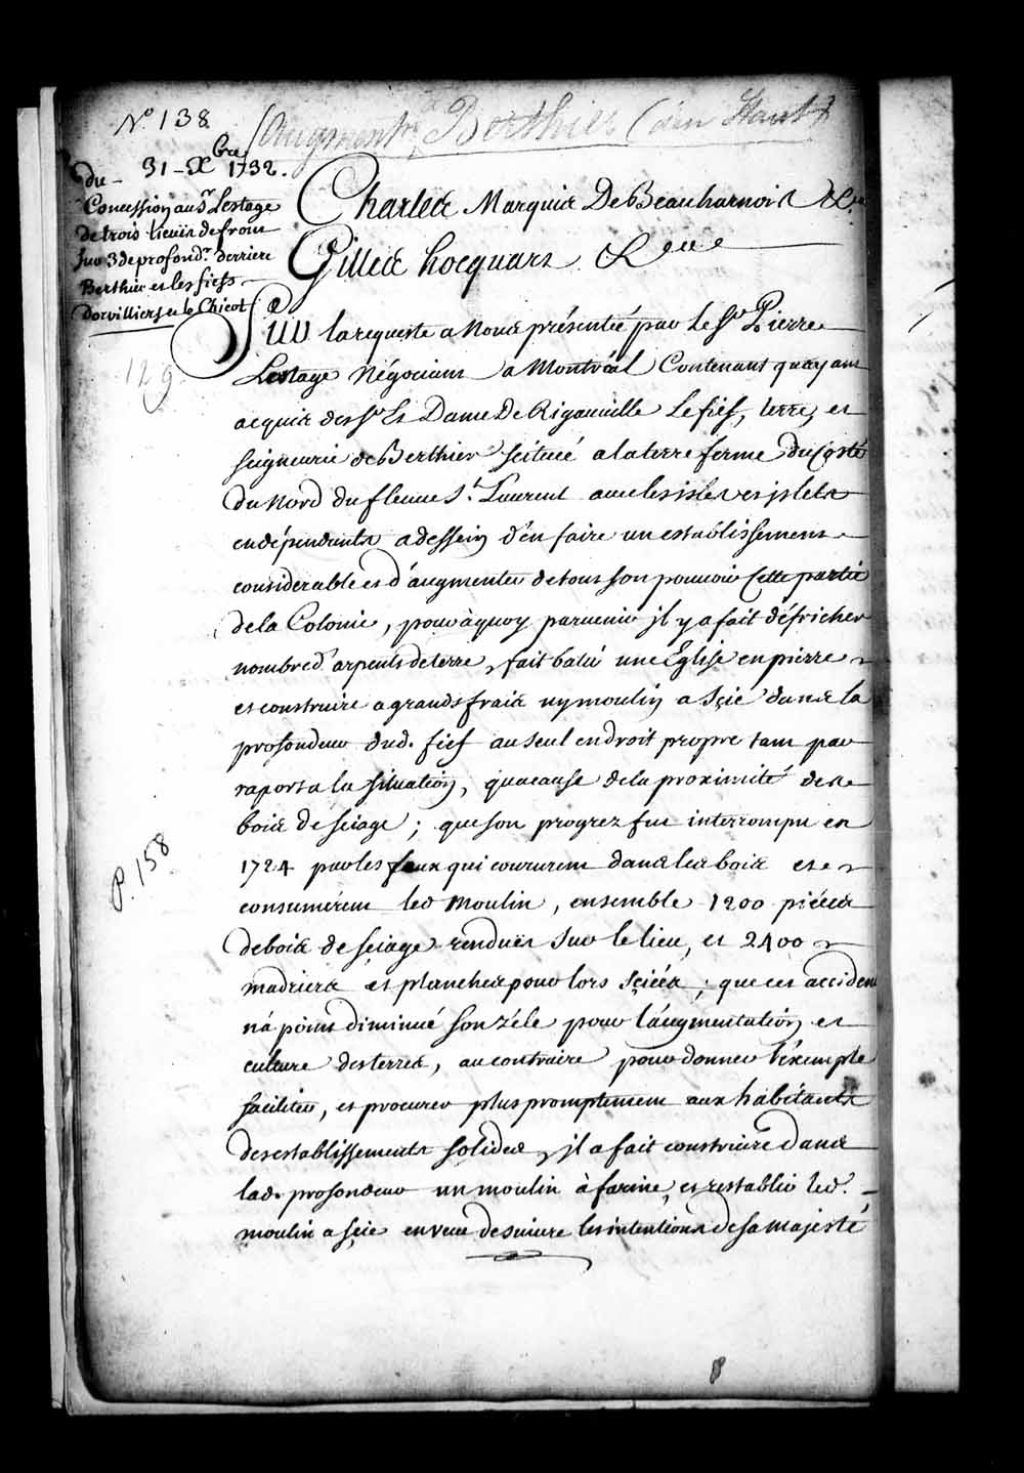 N.º 138.
(Augment.n Berthier (en Haut)
du - 31 - Xbre 1732.
Concession au Sr. Lestage
de trois lieües de front
sur 3 de profondr. derriere
Berthier et les fiefs
Dorvilliers et le Chicot
Charles Marquis De Beauharnois &c.a
Gilles hocquart &c.a
129
Sur la requeste a Nous présentée par le Sr. Pierre
Lestage Négociant a Montréal Contenant quayant
acquis des Sr. Et Dame De Rigauville Le fief, terre, et
seigneurie de Berthier scituée a la terre ferme du Costé
du Nord du fleuve St. Laurent avec les isles et islets
endépendants a dessein d'en faire un establissement
considerable et d'augmenter de tout son pouvoir Cette partie
de la Colonie, pour à quoy parvenir il y a fait défricher
nombre d'arpents de terre, fait batir une Eglise en pierre
et construire a grands frais un moulin a Sçie dans la
profondeur dud. fief au seul endroit propre tant par
raport a la situation, qu'acause de la proximité des
bois de sciage ; que son progrez fut interrompu en
1724 par les feux qui coururent dans les bois et
consumérent led Moulin, ensemble 1200 piéces
P. 158
de bois de sciage rendües sur le lieu, et 2400
madriers et planches pour lors sciées ; que cet accident
n'a point diminué son zéle pour l'augmentation, et
culture des terres, au contraire pour donner l'exemple
faciliter, et procurer plus promptement aux habitants
des establissements solides, il a fait construire dans
lad. profondeur un moulin à farine, et restablir led.
moulin a scie en veue de suivre les intentions de sa majesté